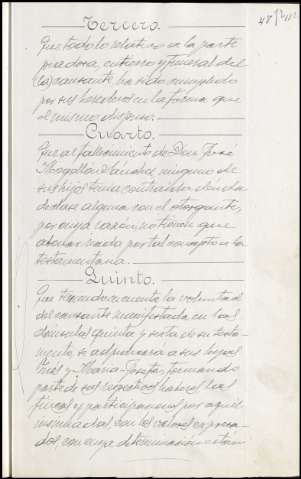 Tercero.
Que todo lo relativo a la parte
piadosa, entierro y funeral del
causante ha sido cumplido
por sus herederos en la forma que
el mismo dispuso.
Cuarto.
Que al fallecimiento de Don José
Mogollón Sánchez ninguno de
sus hijos tenía contraída deuda
de clase alguna con el otorgante,
por cuya razón no tienen que
abonar nada por tal concepto a la
testamentaria.
Quinto.
Que teniendo en cuenta la voluntad
del causante manifestada en las
cláusulas quinta y sexta de su testa-
mento se adjudicará a sus hijos
y María Josefa, formando
parte de sus respectivos haberes las
fincas y participaciones por aquel
mencionadas, con los valores expresa-
dos, con cuya determinación están